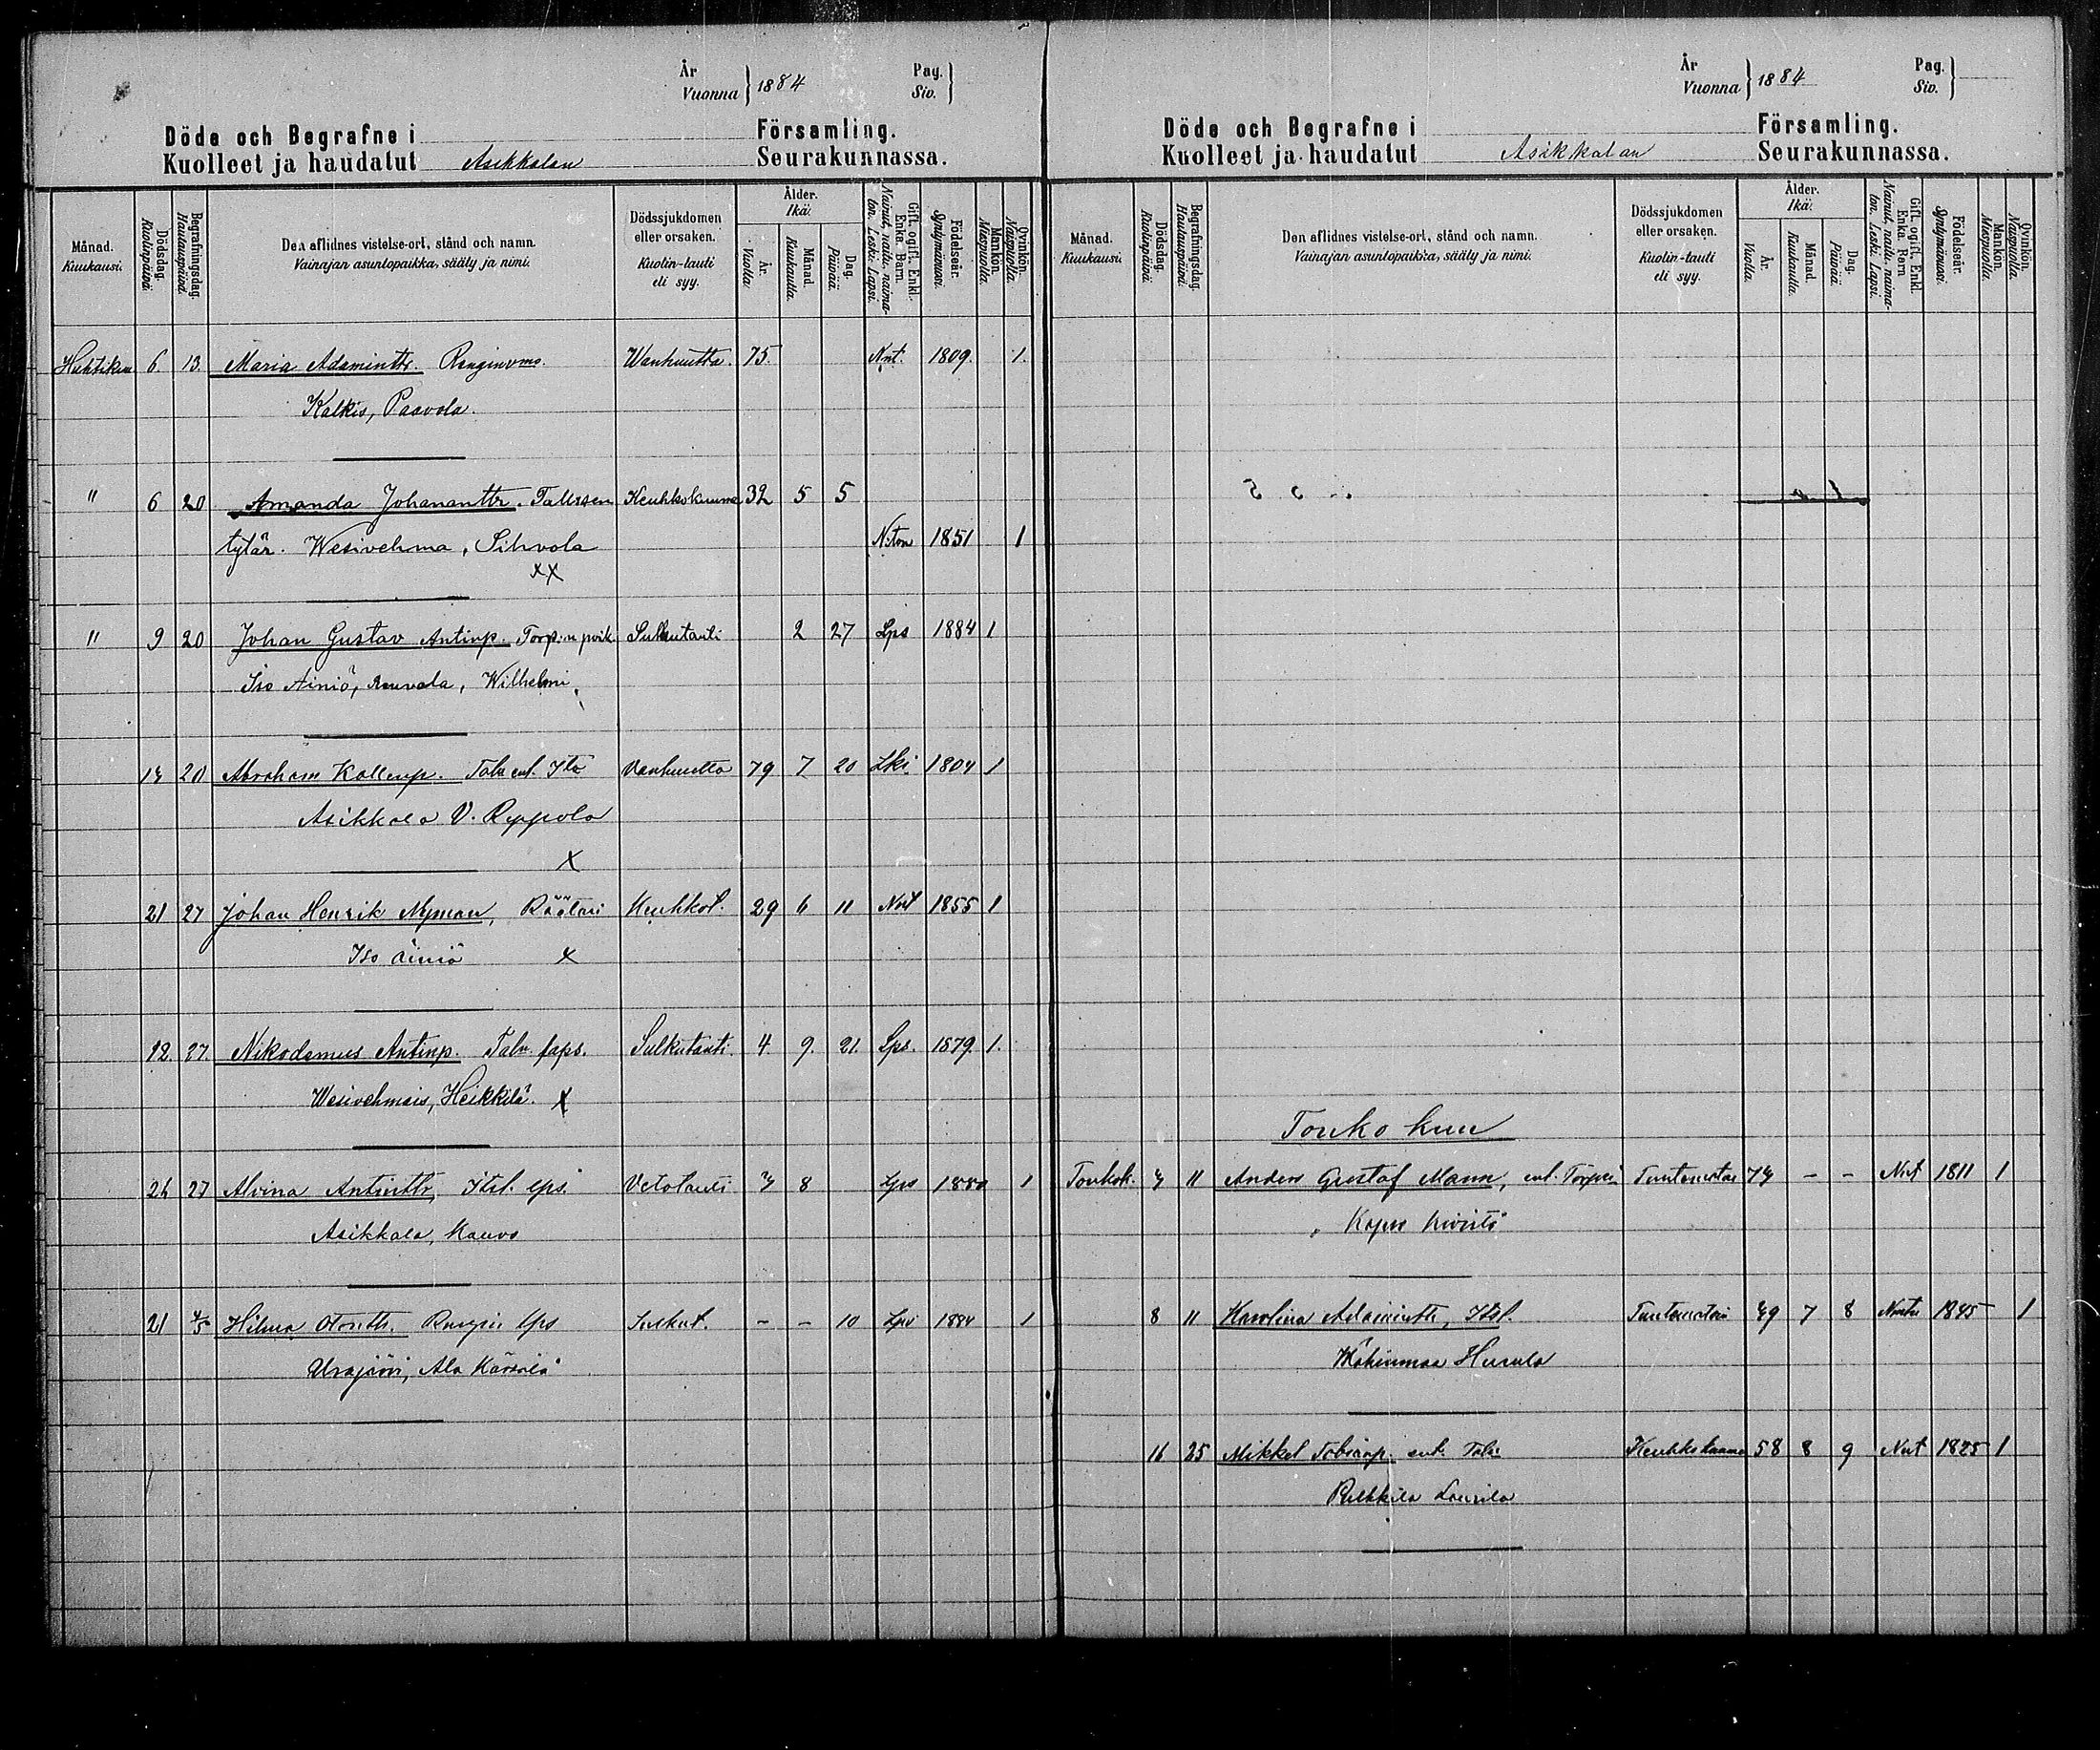 År
Vuonna } 1884
Pag.
Siv. }
Döde och Begrafne i Församling.
Kuolleet ja haudatut Asikkalan Seurakunnassa.
Månad. Kuukausi.
Dödsdag. Kuolinpäivä.
Begrafningsdag. Hautauspäivä.
Den aflidnes vistelse-ort, stånd och namn.
Vainajan asuntopaikka, sääty ja nimi.
Dödssjukdomen eller orsaken.
Kuolin-tauti eli syy.
Ålder. Ikä.
År. Vuotta.
Månad. Kuukautta.
Dag. Päivää.
Gift, ogift, Enkl. Enka. Barn.
Nainut, naitu, naimaton. Leski. Lapsi.
Födelseår. Syntymävuosi.
Mankön. Miespuolia.
Qvinkön. Naispuolia.
Huhtikuu 6. 13. Maria Adamintr. Wanhuutta. 75. Nnt. 1809. 1.
Kalkis, Paavola.
" 6 20 Amanda Johanantr. TalUssen Keuhkokuume 32 5 5
tytär. Wesivehma, Sihvola N:ton 1851 1
XX
" 9 20 Johan Gustav Antinp. Torp:n poik Sulkutauti 2 27 Lps 1884 1
Iso Äiniö, Wilhelmi
14 20 Abraham Kallenp. Talu ent. Itä Vanhuutta 79 7 20 Lki 1804 1
Asikkala V. Reppola
X
21 27 Johan Henrik Nyman, Räätäri Keuhkot. 29 6 11 Nnt 1855 1
Iso äiniö X
27. Nikodemus Antinp. Talu. Sulkutauti. 4 9. 21. Lps. 1879. 1.
Wesivehmais, Heikkilä. X
27 Alvina Antintr, Itsl. lps. Vetotauti 3 8 Lps 1880 1
Asikkala, Kauvo
21 4/5 Hilma Ottontr. lps - - 10 1884 1
Urajärvi, Ala Kärkölä
År
Vuonna } 1884
Pag.
Siv. }
Döde och Begrafne i Församling.
Kuolleet ja haudatut Asikkalan Seurakunnassa.
Månad. Kuukausi.
Dödsdag. Kuolinpäivä.
Begrafningsdag. Hautauspäivä.
Den aflidnes vistelse-ort, stånd och namn.
Vainajan asuntopaikka, sääty ja nimi.
Dödssjukdomen eller orsaken.
Kuolin-tauti eli syy.
Ålder. Ikä.
År. Vuotta.
Månad. Kuukautta.
Dag. Päivää.
Gift, ogift, Enkl. Enka. Barn
Nainut, naitu, naimaton. Leski. Lapsi.
Födelseår. Syntymävuosi.
Mankön. Miespuolia.
Qvinkön. Naispuolia.
Toukokuu
Toukok. 11 Anders Gustaf Mann, ent. Torpari Tuntematon - - Nnt 1811 1
Kopsu
8 11 Karolina Adamintr, Itsl. Tuntematoin 7 8 1
Mähinmaa Hursula
16 25 Mikkel Tobiasp. ent. Talu Keuhkokuume 58 8 9 Nnt 1825 1
Pulkkila Laurila